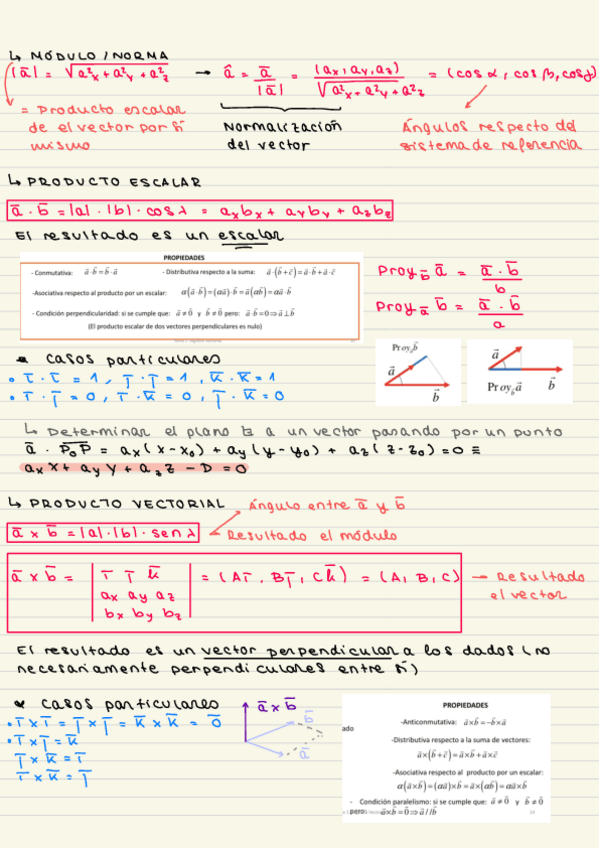 ↳ MÓDULO / NORMA
|ā| = √a²x + a²y + a²z → â = ā/|ā| = (ax, ay, az)/√a²x + a²y + a²z = (cos α, cos β, cos γ)
= Producto escalar de el vector por sí mismo
Normalización del vector
Ángulos respecto del sistema de referencia
↳ PRODUCTO ESCALAR
ā · b̄ = |a| · |b| · cos λ = axbx + ayby + azbz
El resultado es un escalar
PROPIEDADES
- Conmutativa: a⃗·b⃗ = b⃗·a⃗ - Distributiva respecto a la suma: a⃗·(b⃗+c⃗) = a⃗·b⃗ + a⃗·c⃗
-Asociativa respecto al producto por un escalar: α(a⃗·b⃗) = (αa⃗)·b⃗ = a⃗(αb⃗) = αa⃗·b⃗
- Condición perpendicularidad: si se cumple que: a⃗ ≠ 0⃗ y b⃗ ≠ 0⃗ pero: a⃗·b⃗ = 0 ⇒ a⃗ ⊥ b⃗
(El producto escalar de dos vectores perpendiculares es nulo)
Proy b̄ ā = ā · b̄ / b
Proy ā b̄ = ā · b̄ / a
Proyₐb⃗
a⃗
b⃗
a⃗
Proy_b a⃗ b⃗
* Casos particulares
• ī · ī = 1, j̄ · j̄ = 1, k̄ · k̄ = 1
• ī · j̄ = 0, ī · k̄ = 0, j̄ · k̄ = 0
↳ Determinar el plano ⊥ a un vector pasando por un punto
ā · P₀P = ax(x-x₀) + ay(y-y₀) + az(z-z₀) = 0 ≡
axx + ayy + azz - D = 0
↳ PRODUCTO VECTORIAL
Ángulo entre ā y b̄
ā × b̄ = |a| · |b| · sen λ
Resultado el módulo
ā × b̄ = | ī j̄ k̄ | = (Aī, Bj̄, Ck̄) = (A, B, C) → Resultado el vector
ax ay az
bx by bz
El resultado es un vector perpendicular a los dados (no
necesariamente perpendiculares entre sí)
* Casos particulares
• ī × ī = j̄ × j̄ = k̄ × k̄ = 0̄
• ī × j̄ = k̄
j̄ × k̄ = ī
ī × k̄ = j̄
ā × b̄
b̄
ā
PROPIEDADES
ado
-Anticonmutativa: a⃗×b⃗ = -b⃗×a⃗
-Distributiva respecto a la suma de vectores:
a⃗×(b⃗+c⃗) = a⃗×b⃗ + a⃗×c⃗
-Asociativa respecto al producto por un escalar:
α(a⃗×b⃗) = (αa⃗)×b⃗ = a⃗×(αb⃗) = αa⃗×b⃗
- Condición paralelismo: si se cumple que: a⃗ ≠ 0⃗ y b⃗ ≠ 0⃗
pero: a⃗×b⃗ = 0 ⇒ a⃗ // b⃗